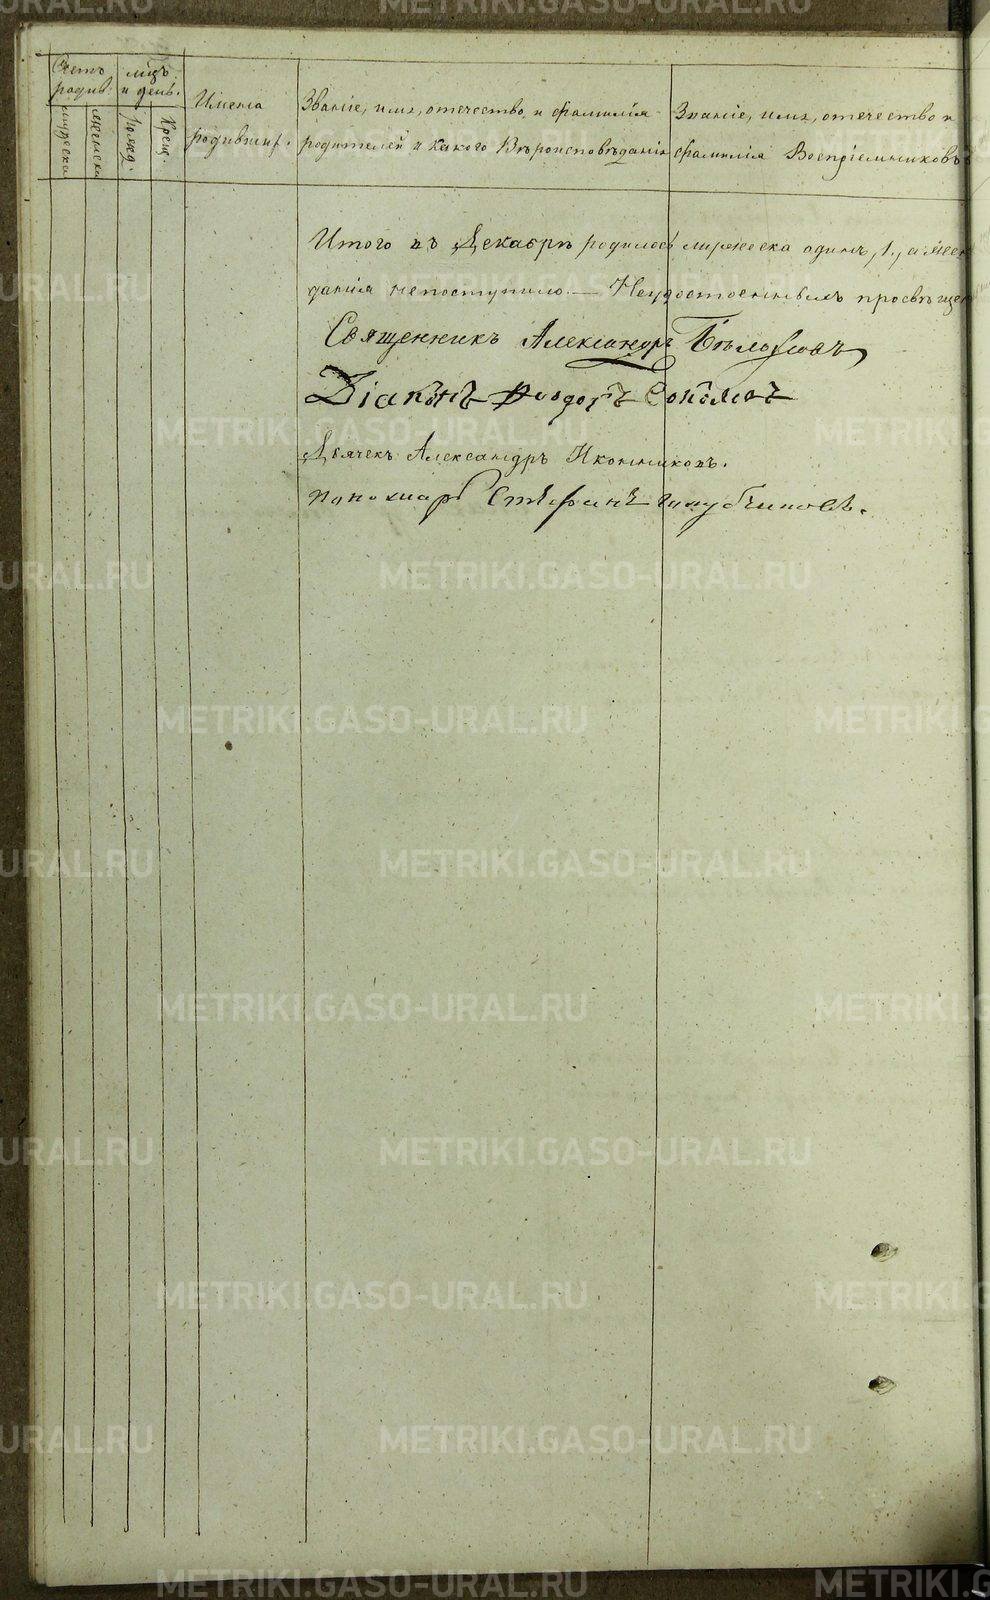 Счетъ родив:
мужеска
женска
мѣцъ и день.
рожд.
Крещ.
Имена родивших.
Званіе, имя, отечество, и фамилія
родителей и какого Вѣроисповѣданія
Званіе, имя, отечество и
фамилія Воспріемниковъ
Итого въ Декабрѣ родилось мужеска одинъ, 1, а жен
данія непоступило. — Неудостоеннымъ просвѣщен
Священникъ Александръ
Діаконъ Ѳеодоръ Соколовъ
Дьячекъ Александръ Иконниковъ.
пономарь Стефанъ Голубчиковъ.
METRIKI.GASO-URAL.RU